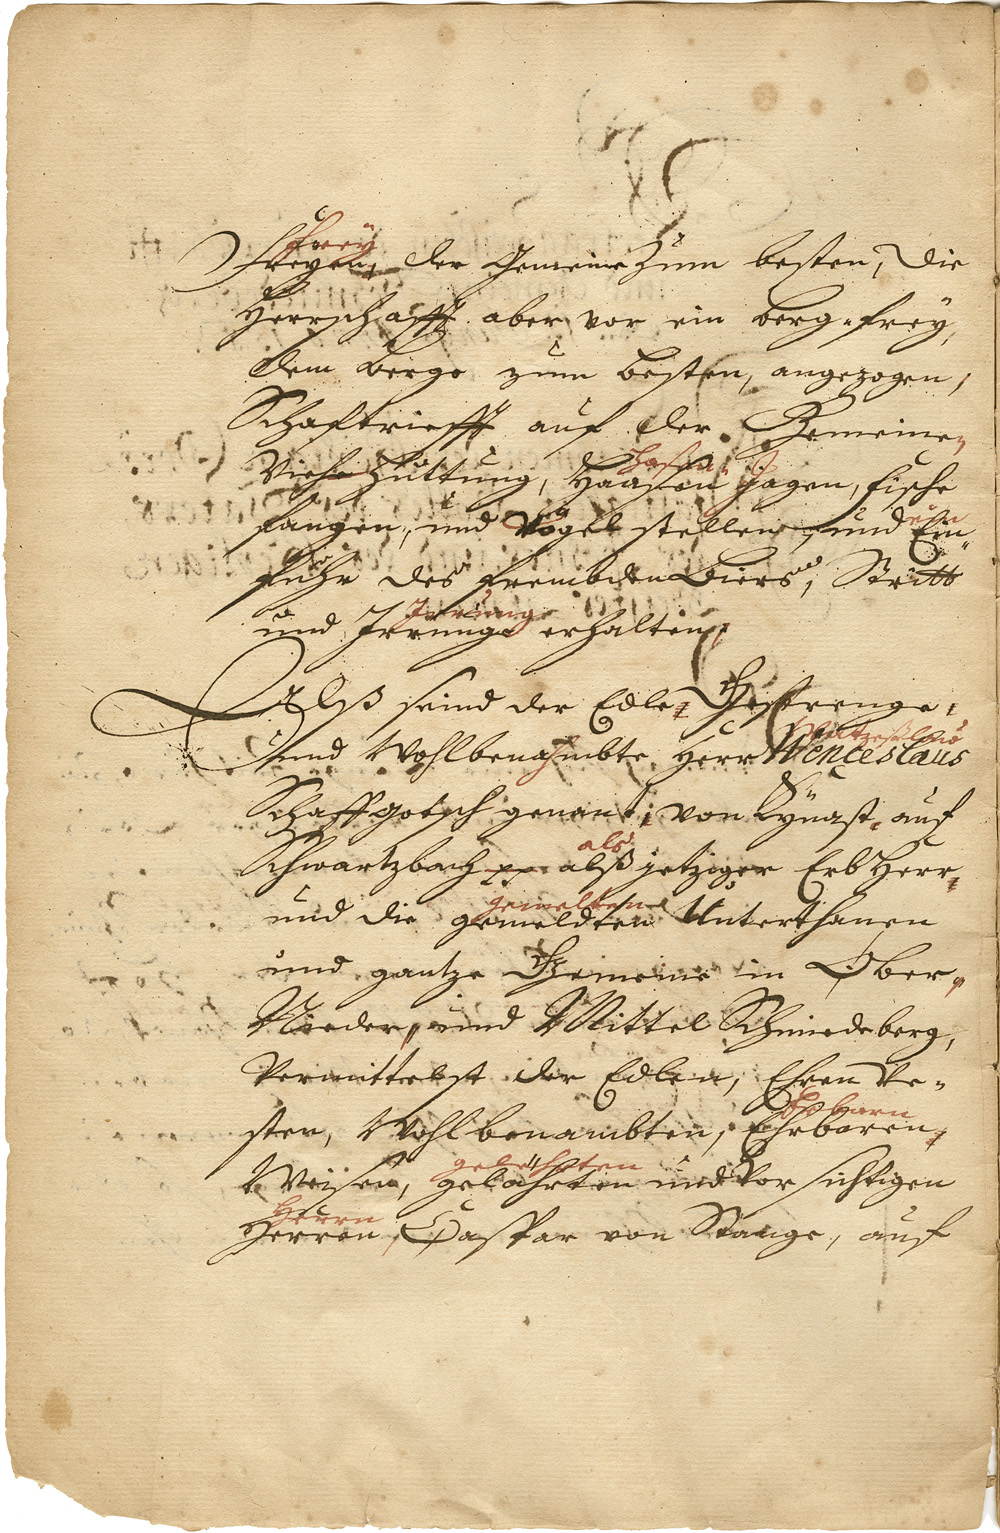 Frey
Freyen, der Gemeine Zum besten, die
Herrschafft aber vor ein berg-frey,
dem berge zum besten, angezogen,
Schaftriefft auf der Gemeine
Viehe Huttung, Haasen Jagen, fische
Hasen J
fangen, und Vögel stellen, und Ein-
ein
fuhr des frembden Biers, Stritt
und Irrunge erhalten,
Irrung
Alß seind der Edle, Gestrenge,
und Wohlbenahmbte Herr Wenceslaus
Wentzeßlaus
Schaffgotsch genant, von Kÿnast, auf
Schwartzbach pp alß jetziger Erb Herr,
als
und die gemeldten Unterthanen
gemelten
und gantze Gemeine in Ober,
Nieder, und Mittel Schmiedeberg,
Vermittelst der Edlen, Ehren Ve-
sten, Wohlbenambten, Ehrbaren,
Erbarn
Weisen, gelährten und Vorsichtigen
gelehrten
Herren, Caspar von Stange, auf
Herrn